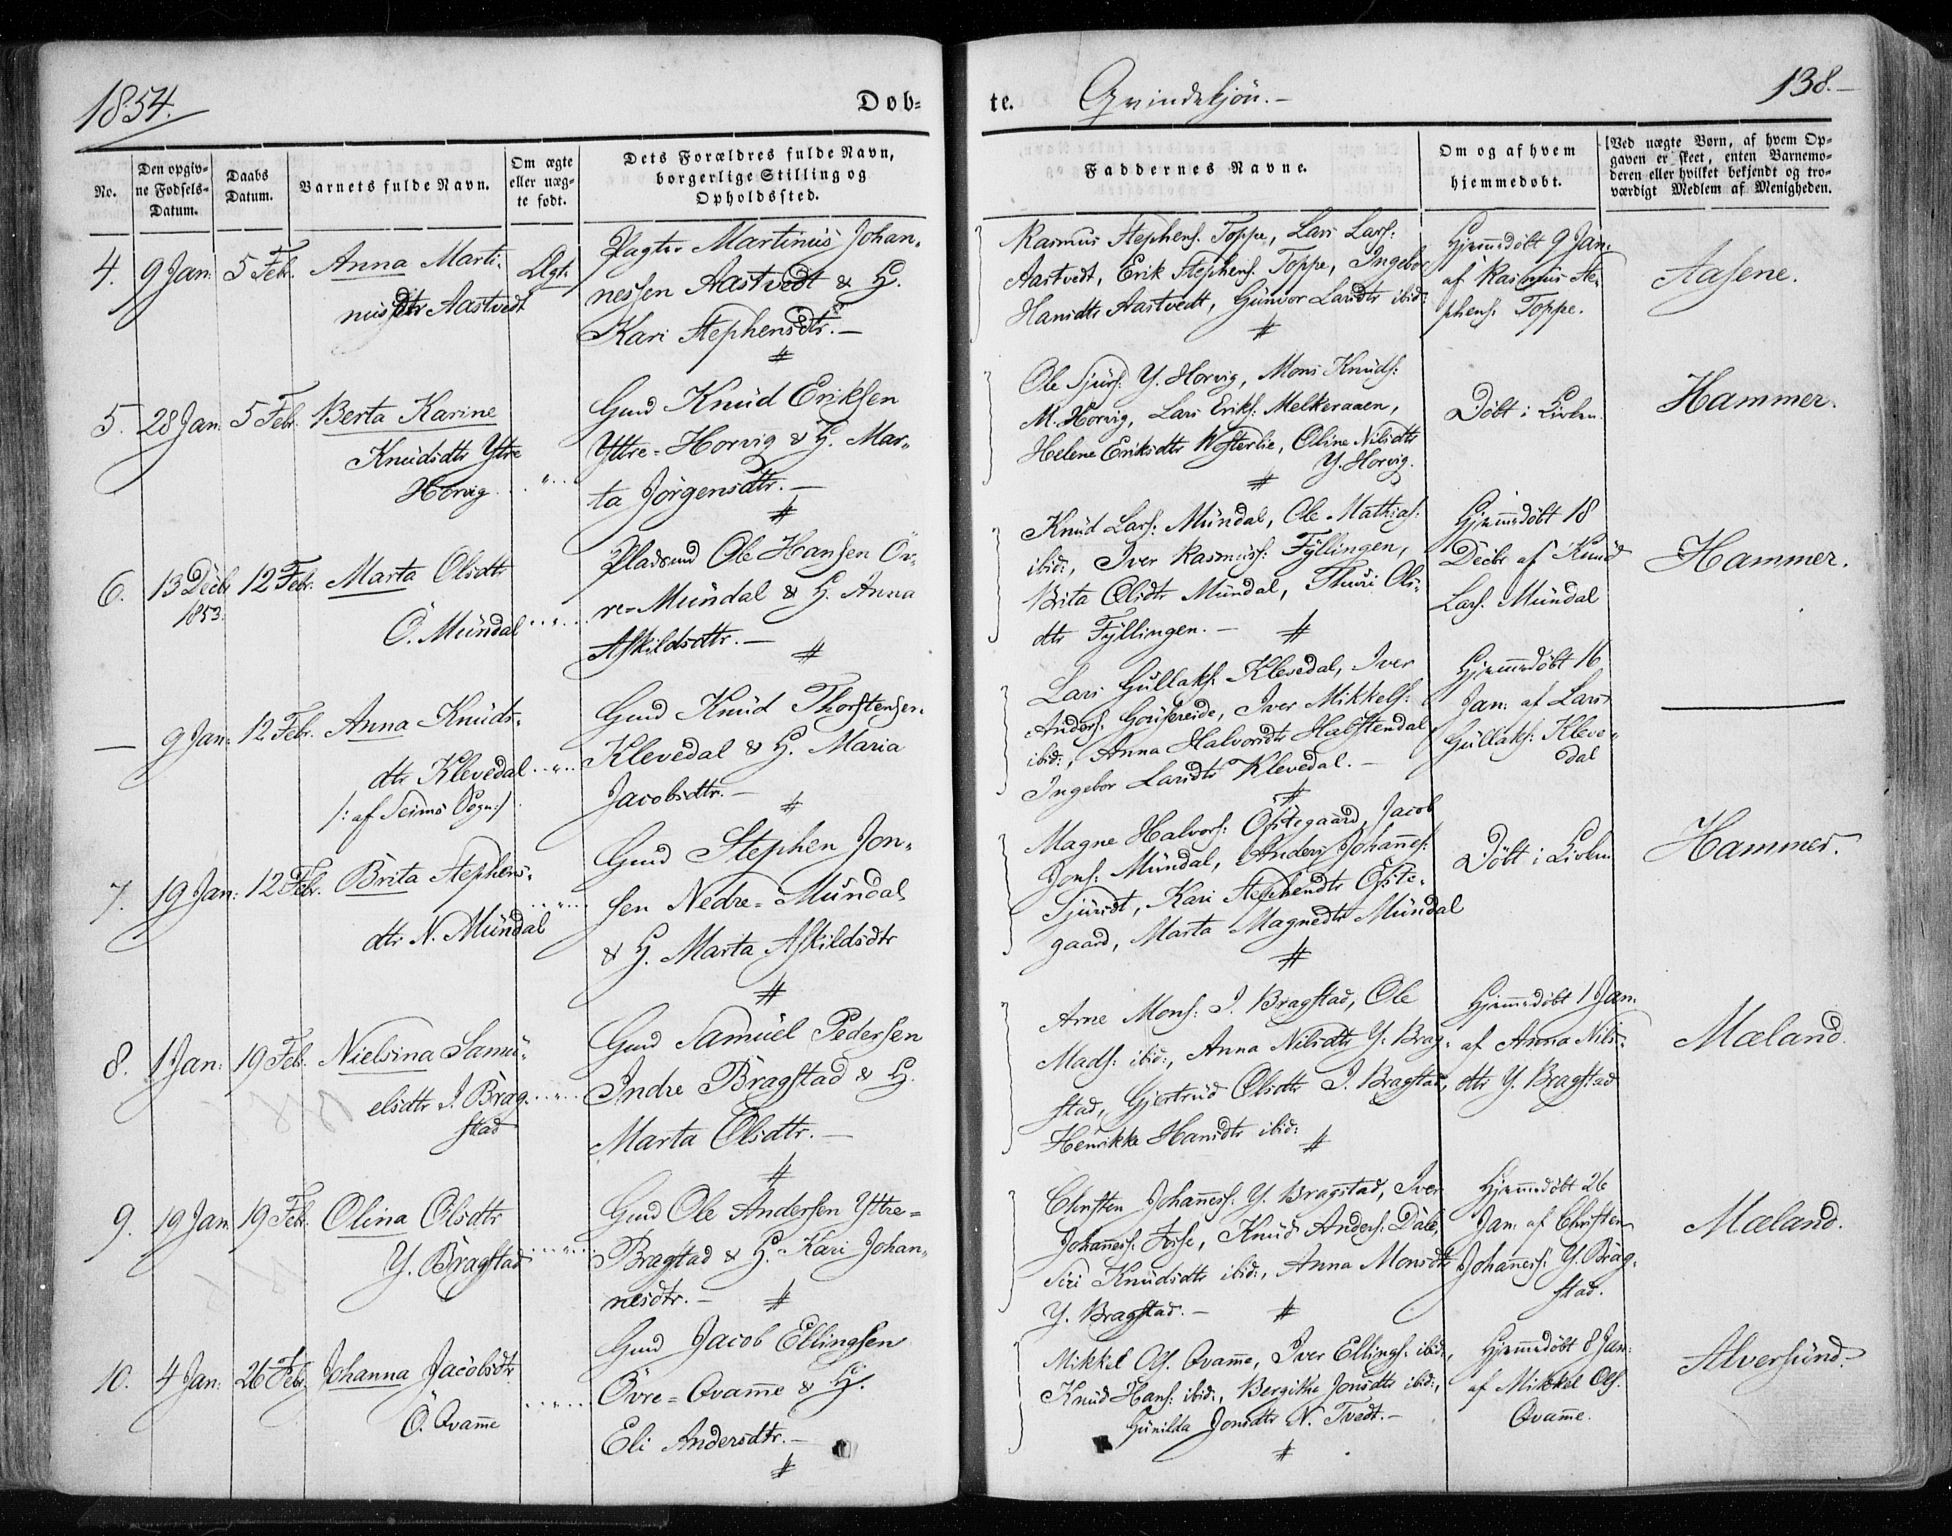 1854.
Døb-
te.
Qvindekjøn.-
138.-
No.
Den opgiv-
ne Fødsels-
Datum.
Daabs
Datum.
Barnets fulde Navn.
Om ægte
eller uæg-
te født.
Dets Forældres fulde Navn,
borgerlige Stilling og
Opholdssted.
Faddernes Navne.
Om og af hvem
hjemmedøbt.
Ved uægte Børn, af hvem Op-
gaven er skeet, enten Barnemo-
deren eller hvilket bekjendt og tro-
værdigt Medlem af Menigheden.
4. 9 Jan: 5 Febr. Anna Marti-
nusdtr Aastvedt
Ægt:
Pagter Martinus Johan-
nessen Aastvedt & H.
Kari Stephensdtr.-
Rasmus Stephens: Toppe, Lars Lars:
Aastvedt, Erik Stephens: Toppe, Ingebor
Hansdtr Aastvedt, Gunvor Larsdtr ibid:
Hjemmedøbt 9 Jan:
af Rasmus Ste-
phens: Toppe.
Aasene.
5. 28 Jan: 5 Febr. Berta Karine
Knudsdtr Ytre
Horvig
Gmd Knud Eriksen
Yttre-Horvig & H. Mar-
ta Jørgensdtr.-
Ole Sjurs: Y. Horvig, Mons Knuds:
M. Horvig, Lars Eriks: Melkeraaen,
Helene Eriksdtr Westerlie, Oline Nilsdtr
Y. Horvig.
Døbt i Kirken.
Hammer.
6. 13 Decbr 12 Febr. Marta Olsdtr
1853.
Ö. Mundal
Pladsmd Ole Hansen Öv-
re-Mundal & H. Anna
Askildsdtr.-
Knud Lars: Mundal, Ole Mathias:
ibid:, Iver Rasmuss: Fyllingen,
Brita Olsdtr Mundal, Thuri Ols-
dtr Fyllingen.-
Hjemmedøbt 18
Decbr af Knud
Lars: Mundal
Hammer.
— 9 Jan: 12 Febr. Anna Knuds-
dtr Klevedal
/: af Seims Sogn:/
Gmd Knud Thorstensen
Klevedal & H. Maria
Jacobsdtr.-
Lars Gullaks: Klevedal, Iver
Anders: Iver Mikkels:
ibid:, Anna Halvorsdtr Halstendal
Ingebor Larsdtr Klevedal.-
Hjemmedøbt 16
Jan: af Lars
Gullaks: Kleve-
dal
7. 19 Jan: 12 Febr. Brita Stephens-
dtr N. Mundal
Gmd Stephen Jon-
sen Nedre-Mundal
& H. Marta Askildsdtr
Magne Halvors: Östegaard, Jacob
Jons: Mundal, Anders Johannes:
Kari Stephendtr Öste-
gaard, Marta Magnedtr Mundal
Døbt i Kirken
Hammer.
8. 1 Jan: 19 Febr. Nielsina Samu-
elsdtr I. Brag-
stad
Gmd Samuel Pedersen
Indre Bragstad & H.
Marta Olsdtr.-
Arne Mons: I. Bragstad, Ole
Mads: ibid:, Anna Nilsdtr Y. Brag-
stad, Gjertrud Olsdtr I. Bragstad,
Henrikke Hansdtr ibid:
Hjemmedøbt 1 Jan:
af Anna Nils-
dtr Y. Bragstad
Mæland.
9. 19 Jan: 19 Febr. Olina Olsdtr
Y. Bragstad
Gmd Ole Andersen Yttre-
Bragstad & H. Kari Johan-
nesdtr.-
Christen Johanness: Y. Bragstad, Iver
Johanness: Knud Anders: Dale,
Siri Knudsdtr ibid:, Anna Monsdtr
Y. Bragstad.-
Hjemmedøbt 26
Jan: af Christen
Johanness: Y. Brag-
stad.
Mæland.
10. 4 Jan: 26 Febr. Johanna Jacobsdtr
Ö. Qvamme
Gmd Jacob Ellingsen
Övre-Qvamme & H.
Eli Andersdtr.-
Mikkel Ols: Qvamme, Iver Ellings: ibid:,
Knud Hans: ibid:, Bergithe Jonsdtr ibid:,
Gunilda Jonsdtr N. Tvedt.-
Hjemmedøbt 8 Jan:
af Mikkel Ols:
Qvamme.
Alversund.-